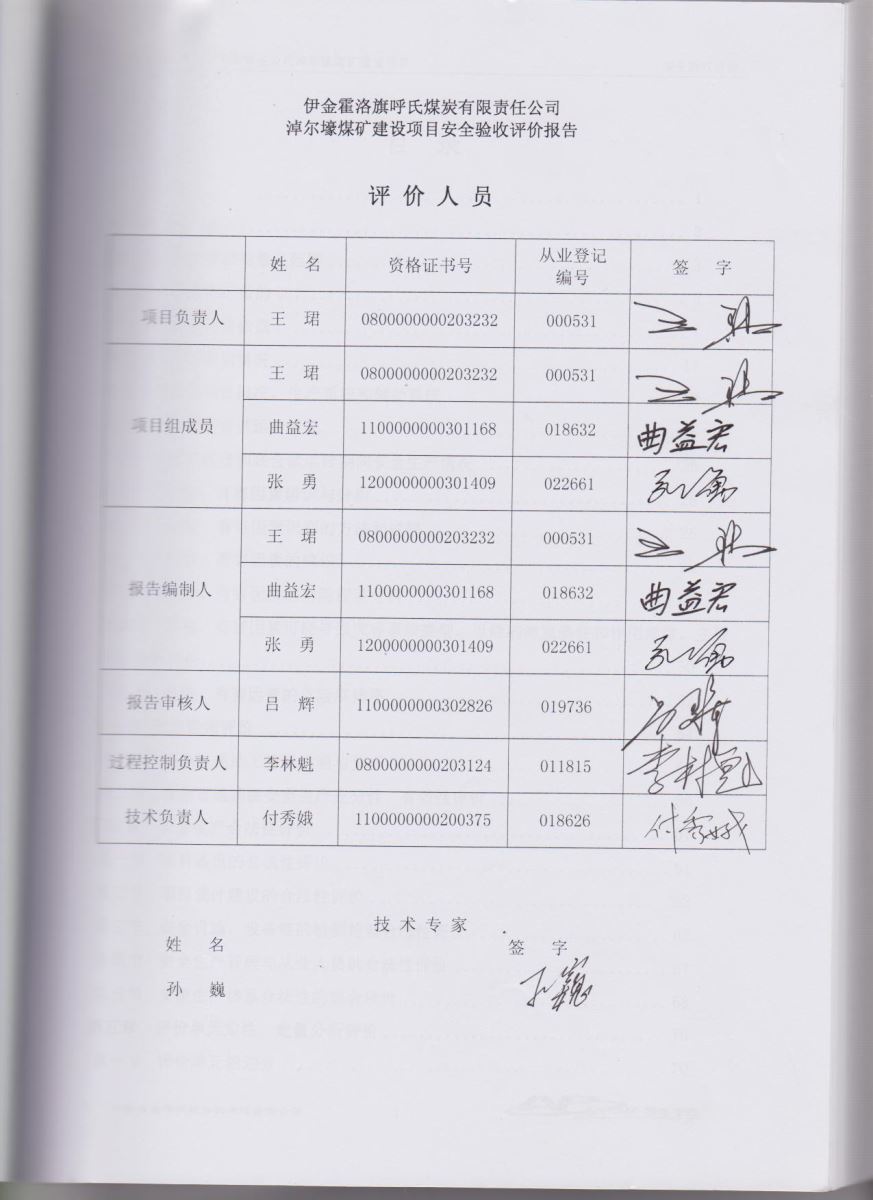 伊金霍洛旗呼氏煤炭有限责任公司
淖尔壕煤矿建设项目安全验收评价报告
评价人员
姓 名 资格证书号 从业登记编号 签 字
项目负责人 王 珺 0800000000203232 000531 王珺
项目组成员 王 珺 0800000000203232 000531 王珺
曲益宏 1100000000301168 018632 曲益宏
张 勇 1200000000301409 022661 张勇
报告编制人 王 珺 0800000000203232 000531 王珺
曲益宏 1100000000301168 018632 曲益宏
张 勇 1200000000301409 022661 张勇
报告审核人 吕 辉 1100000000302826 019736 吕辉
过程控制负责人 李林魁 0800000000203124 011815 李林魁
技术负责人 付秀娥 1100000000200375 018626 付秀娥
技术专家
姓 名 签 字
孙 巍 孙巍